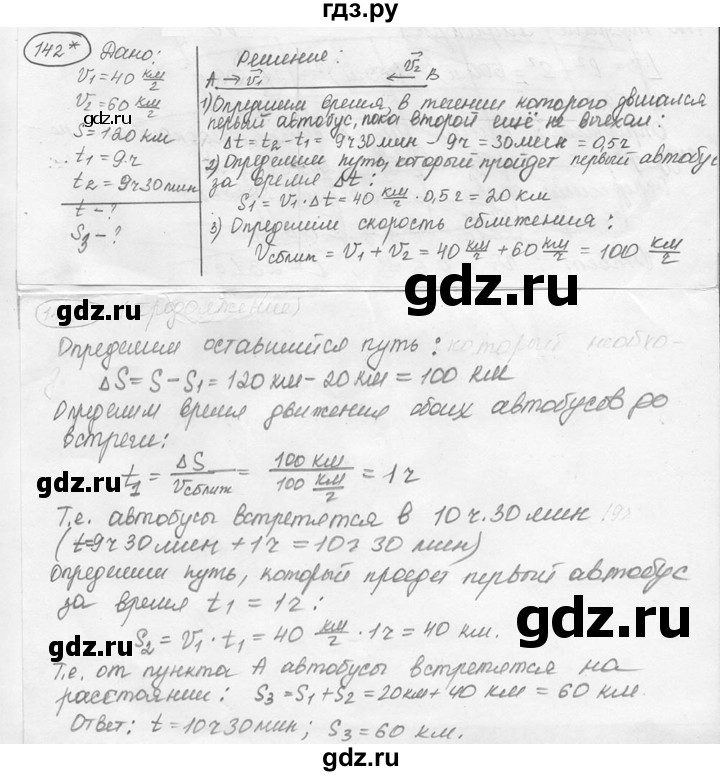 гдз.ру
142* Дано:
V1 = 40 км/ч
V2 = 60 км/ч
S = 120 км
t1 = 9ч
t2 = 9ч30мин
t - ?
S3 - ?
Решение:
A V1 V2 B
1) Определим время, в течении которого двигался
первый автобус, пока второй ещё не выехал:
Δt = t2 - t1 = 9ч30мин - 9ч = 30мин = 0,5ч
2) Определим путь, который пройдет первый автобус
за время Δt:
S1 = V1 · Δt = 40 км/ч · 0,5ч = 20 км
3) Определим скорость сближения:
Vсближ = V1 + V2 = 40 км/ч + 60 км/ч = 100 км/ч
(продолжение)
Определим оставшийся путь: который необхо-
ΔS = S - S1 = 120 км - 20 км = 100 км
Определим время движения обоих автобусов до
встречи:
t1 = ΔS/Vсближ = 100 км/100 км/ч = 1ч
Т.е. автобусы встретятся в 10ч.30мин
(t=9ч30мин + 1ч = 10ч30мин)
Определим путь, который проедет первый автобус
за время t1 = 1ч:
S2 = V1 · t1 = 40 км/ч · 1ч = 40 км.
Т.е. от пункта А автобусы встретятся на
расстоянии: S3 = S1 + S2 = 20км + 40 км = 60 км.
Ответ: t = 10ч30мин; S3 = 60 км.
gdz.ru
gdz.ru
gdz.ru
gdz.ru
gdz.ru
gdz.ru
gdz.ru
gdz.ru